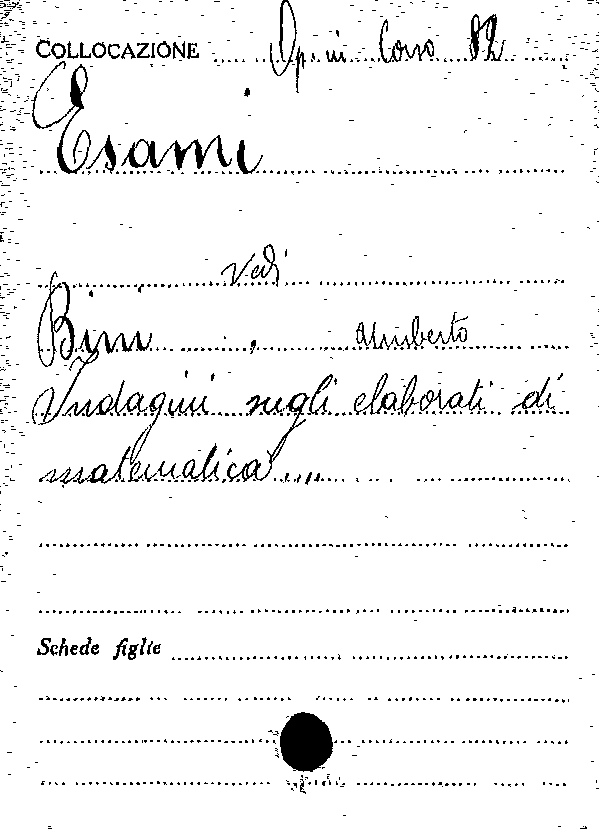 COLLOCAZIONE Opini Corso 82
Esami
Vedi
Bini, Umberto
Indagini sugli elaborati di
matematica....
Schede figlie